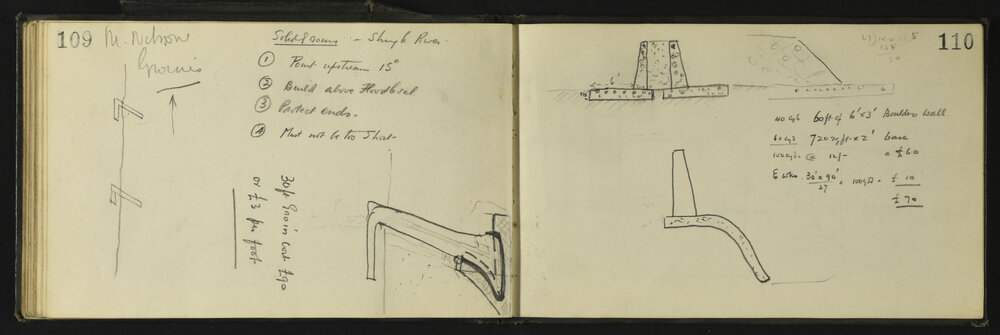 109
M. Nelson
Groins
Solid Groins :- Shingle River.
① Point upstream 15°
② Build above Flood level
③ Protect ends.
④ Must not be too Short-
30ft Groin cost £90
or £3 per foot
110
6'
6
40 cyd 60ft of 6'x3' Boulder Wall.
60 cyd 720 sq ft x 2' base
100 cyds @ 12/- = £60
30' x 90' = 100 yd = £ 10
27
£ 70